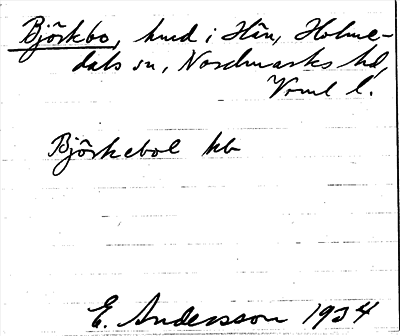 Björkbo, hmd i Hån, Holme-
dals sn, Nordmarks hd,
Vrml l.
Björkebol kb
E. Andersson 1924